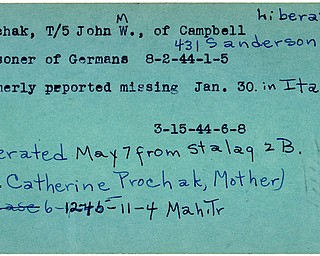 Liberat
M
chak, T/5 John W., of Campbell
431 Sanderson
soner of Germans 8-2-44-1-5
merly peported missing Jan. 30. in Ita
3-15-44-6-8
erated May 7 from Stalag 2B.
. Catherine Prochak, Mother)
ease 6-12-45-11-4 Mah. Tr